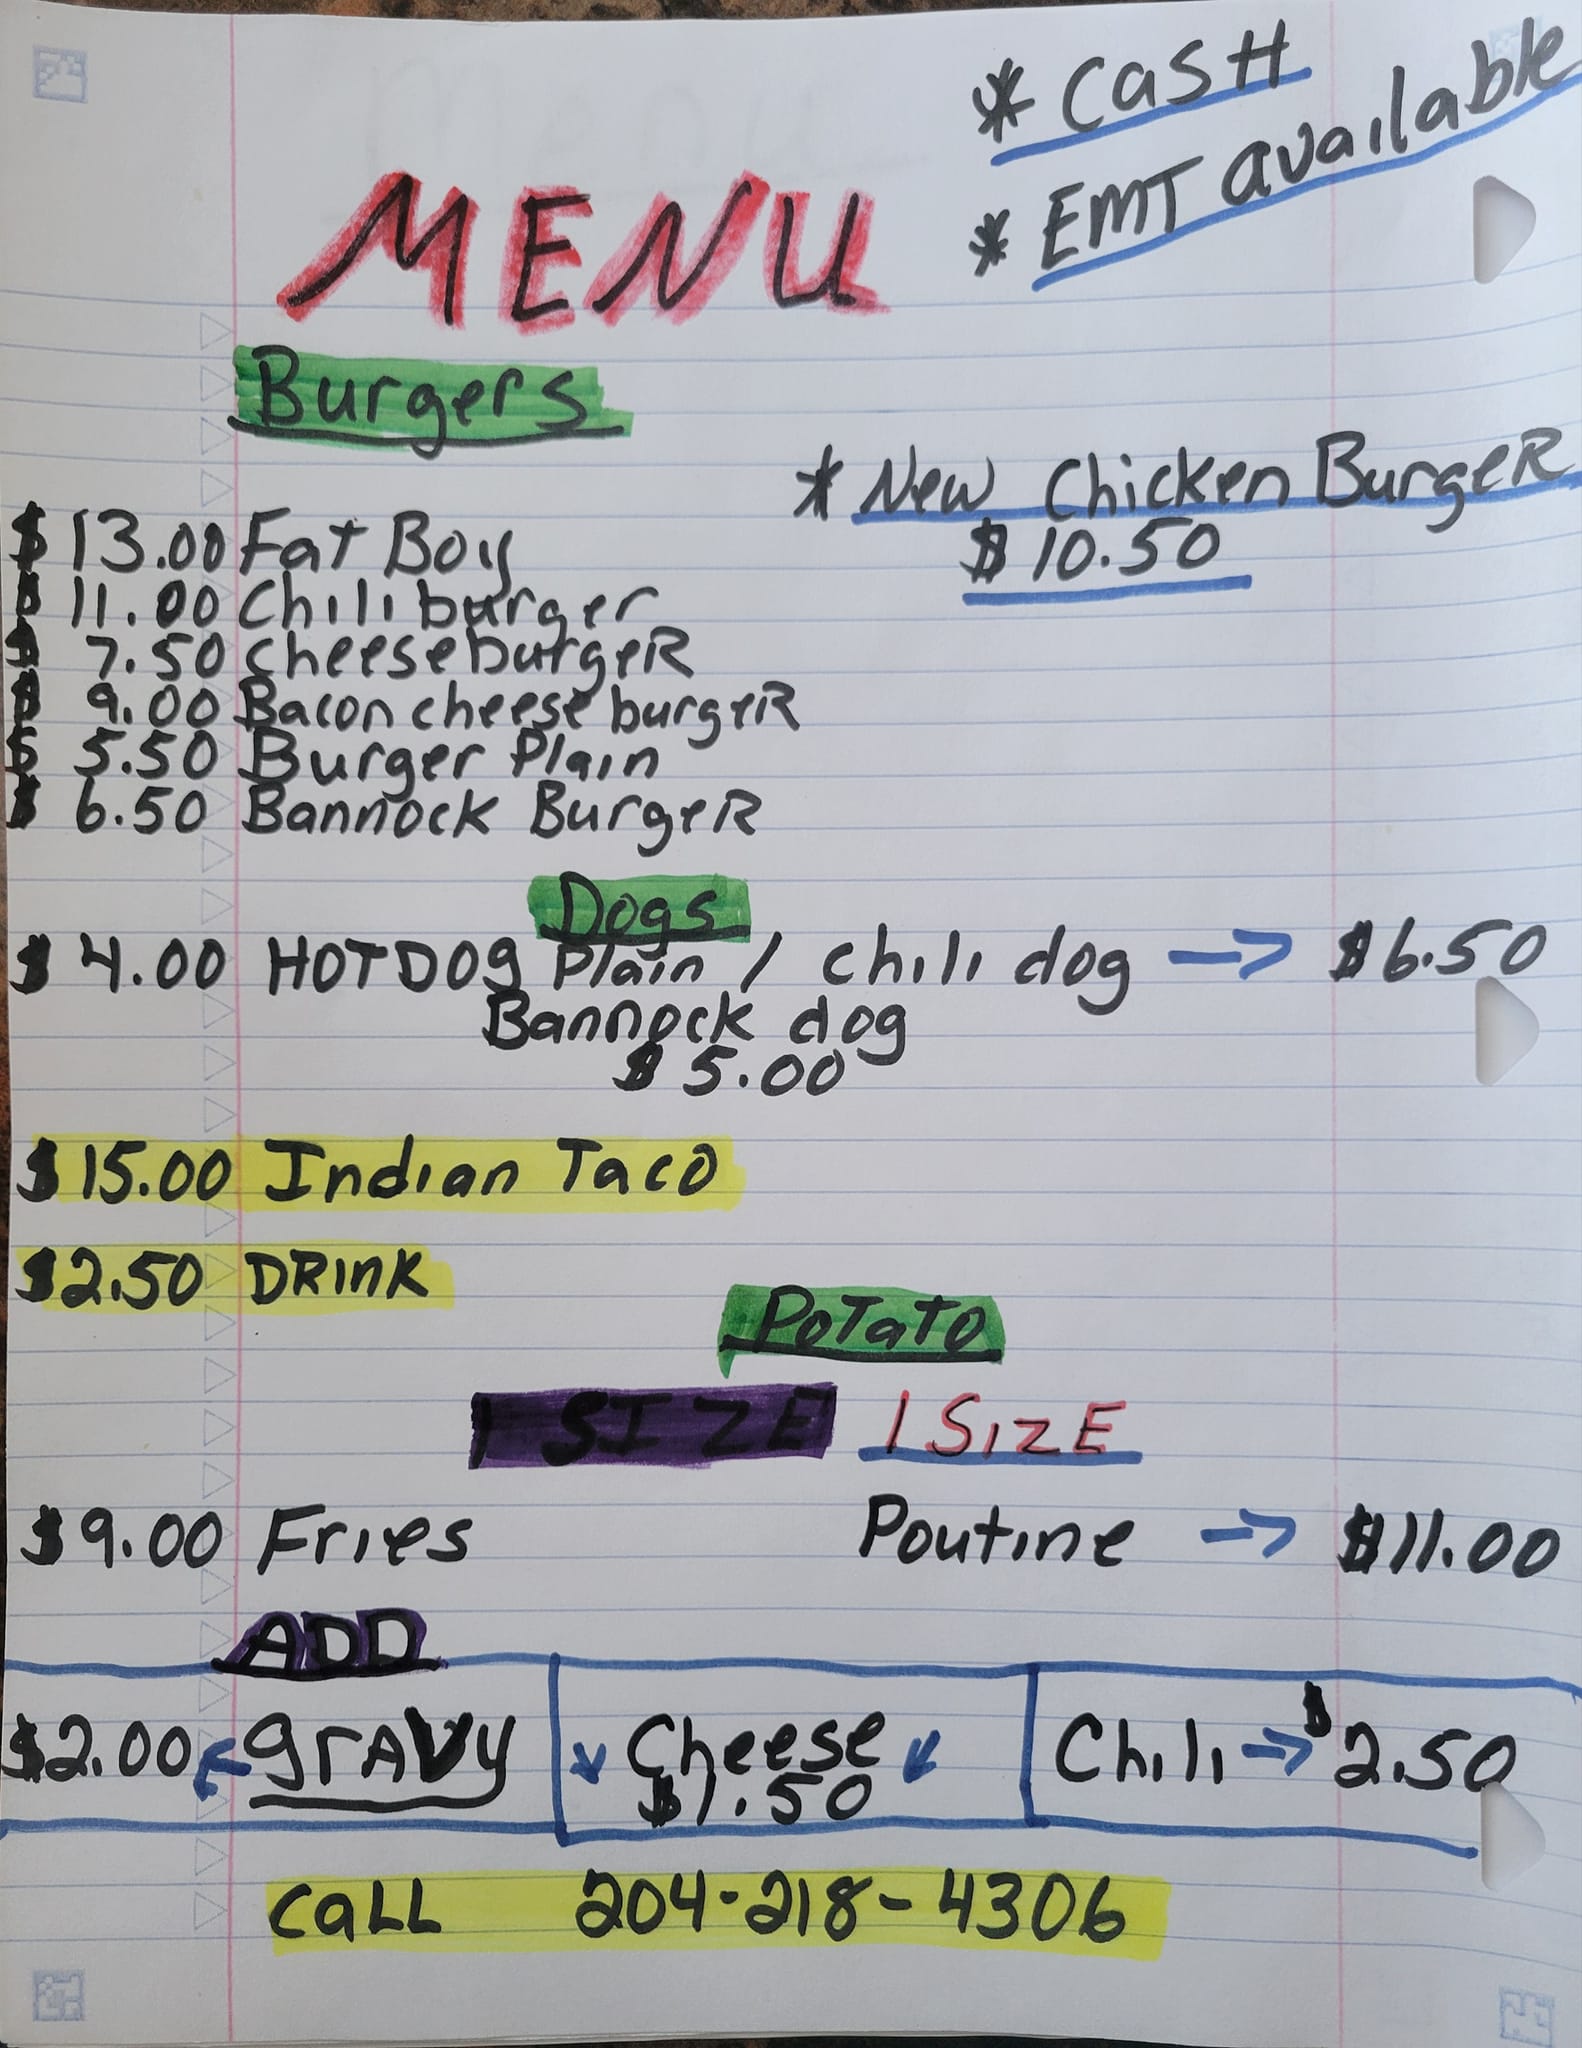 * CASH
* EMT available
MENU
Burgers
* New Chicken BurgeR
$ 10.50
$ 13.00 Fat Boy
$ 11.00 Chili burger
$ 7.50 cheeseburgeR
$ 9.00 Bacon cheese burgeR
$ 5.50 Burger Plain
$ 6.50 Bannock BurgeR
Dogs
$ 4.00 HOTDOg Plain / chili dog → $6.50
Bannock dog
$ 5.00
$15.00 Indian Taco
$2.50 DRInK
PoTaTo
1 SIZE 1 SIZE
$9.00 Fries Poutine → $11.00
ADD
$2.00 ← grAVy ↓ Cheese ↙ Chili → $2.50
$1.50
caLL 204-218-4306